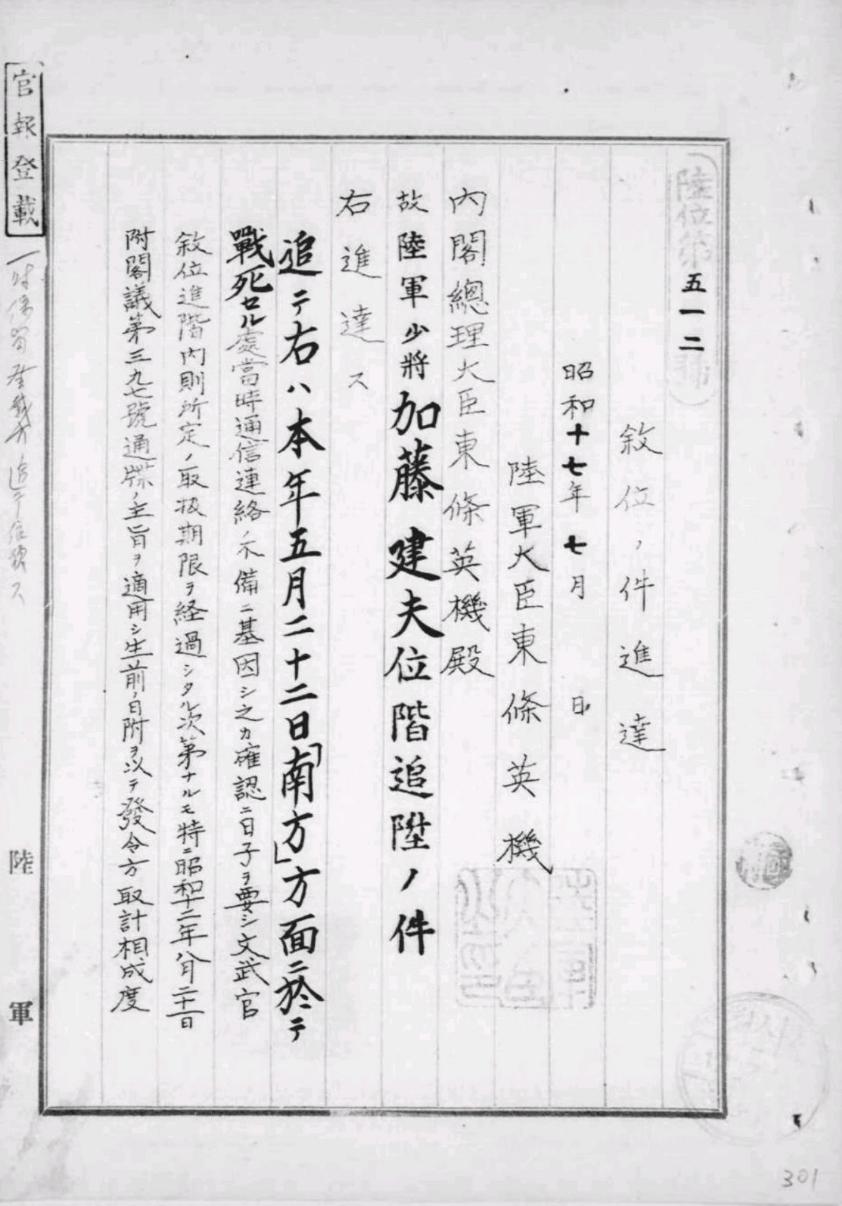 陸位第五一二號
敍位ノ件進達
昭和十七年七月　日
陸軍大臣東條英機
內閣總理大臣東條英機殿
故陸軍少將加藤建夫位階追陞ノ件
右進達ス
追テ右ハ本年五月二十二日「南方」方面ニ於テ
戰死セル處當時通信連絡ノ不備ニ基因シ之カ確認ニ日子ヲ要シ文武官
敍位進階內則所定ノ取扱期限ヲ経過シタル次第ナルモ特ニ昭和十二年八月二十一日
附閣議第三九七號通牒ノ主旨ヲ適用シ生前ノ日附ヲ以テ發令方取計相成度
官報登載
陸軍
301